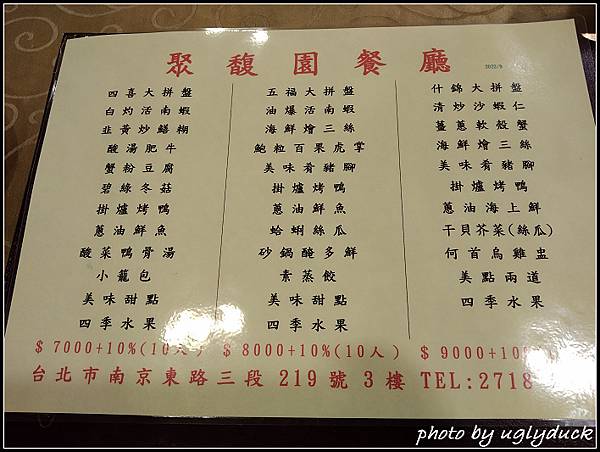 聚馥園餐廳 2022/9
四喜大拼盤
白灼活南蝦
韭黃炒鱔糊
酸湯肥牛
蟹粉豆腐
碧綠冬菇
掛爐烤鴨
蔥油鮮魚
酸菜鴨骨湯
小籠包
美味甜點
四季水果
$7000+10%(10人)
五福大拼盤
油爆活南蝦
海鮮燴三絲
鮑粒百果虎掌
美味肴豬腳
掛爐烤鴨
蔥油鮮魚
蛤蜊絲瓜
砂鍋醃多鮮
素蒸餃
美味甜點
四季水果
$8000+10%(10人)
什錦大拼盤
清炒沙蝦仁
薑蔥軟殼蟹
海鮮燴三絲
美味肴豬腳
掛爐烤鴨
蔥油海上鮮
干貝芥菜(絲瓜)
何首烏雞盅
美點兩道
四季水果
$9000+10%
台北市南京東路三段219號3樓 TEL:2718
photo by uglyduck